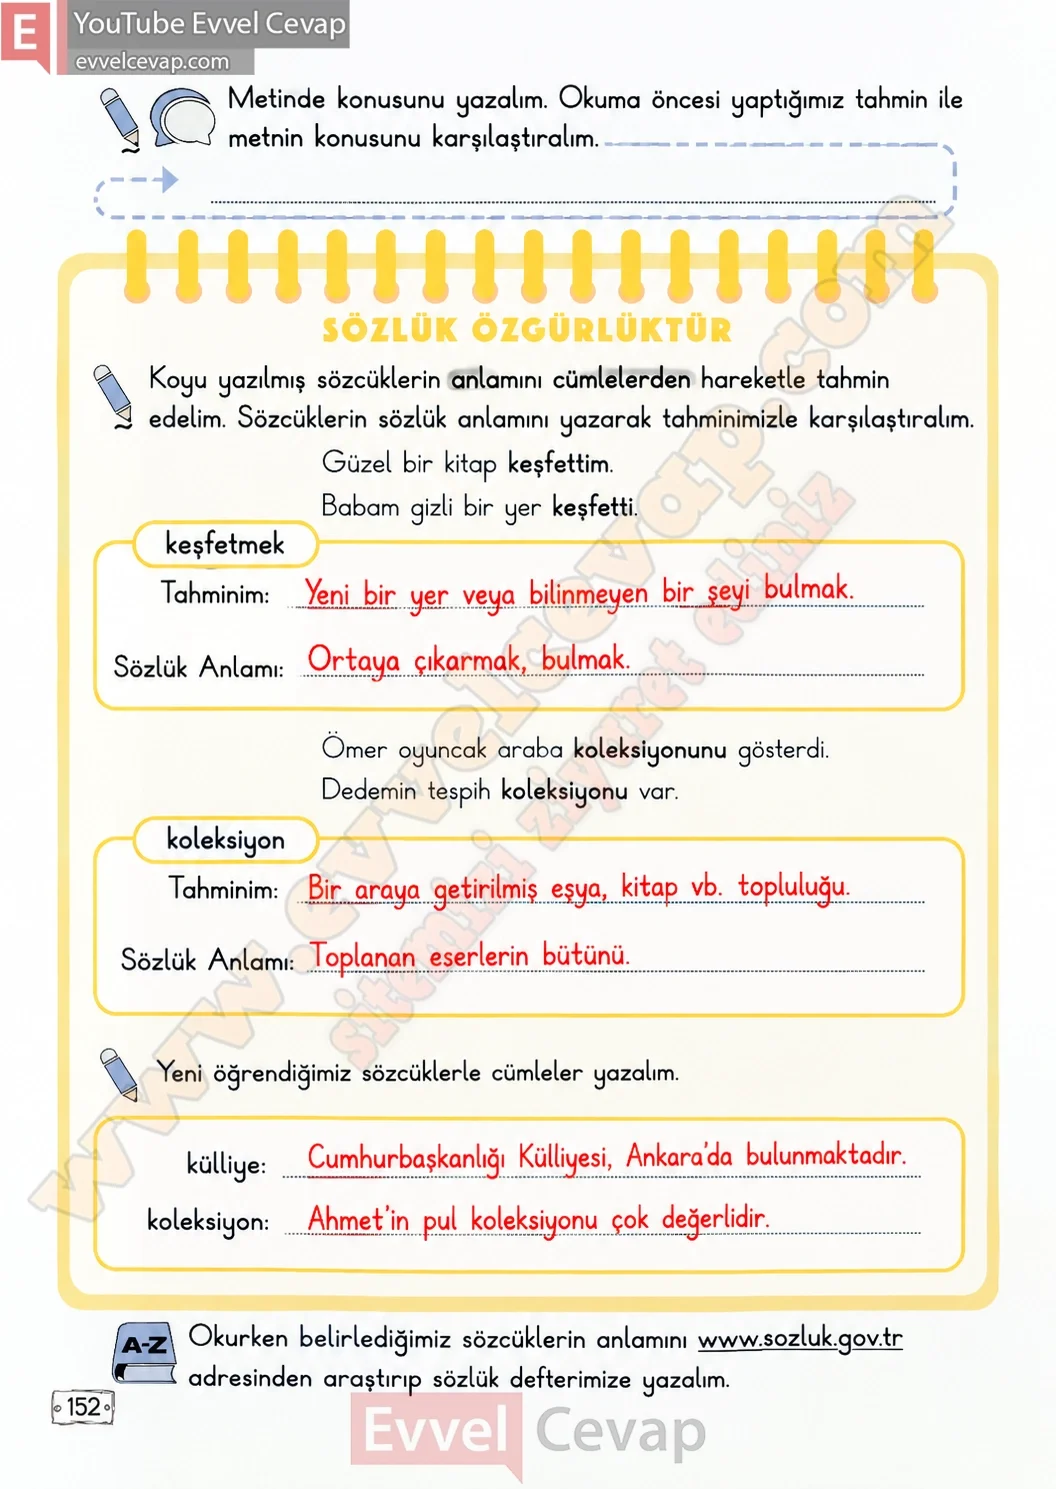 E YouTube Evvel Cevap
evvelcevap.com
Metinde konusunu yazalım. Okuma öncesi yaptığımız tahmin ile
metnin konusunu karşılaştıralım.
SÖZLÜK ÖZGÜRLÜKTÜR
Koyu yazılmış sözcüklerin anlamını cümlelerden hareketle tahmin
edelim. Sözcüklerin sözlük anlamını yazarak tahminimizle karşılaştıralım.
Güzel bir kitap keşfettim.
Babam gizli bir yer keşfetti.
keşfetmek
Tahminim: Yeni bir yer veya bilinmeyen bir şeyi bulmak.
Sözlük Anlamı: Ortaya çıkarmak, bulmak.
Ömer oyuncak araba koleksiyonunu gösterdi.
Dedemin tespih koleksiyonu var.
koleksiyon
Tahminim: Bir araya getirilmiş eşya, kitap vb. topluluğu.
Sözlük Anlamı: Toplanan eserlerin bütünü.
Yeni öğrendiğimiz sözcüklerle cümleler yazalım.
külliye: Cumhurbaşkanlığı Külliyesi, Ankara'da bulunmaktadır.
koleksiyon: Ahmet'in pul koleksiyonu çok değerlidir.
A-Z Okurken belirlediğimiz sözcüklerin anlamını www.sozluk.gov.tr
adresinden araştırıp sözlük defterimize yazalım.
152
Evvel Cevap
www.evvelcevap.com
sitemizi ziyaret ediniz